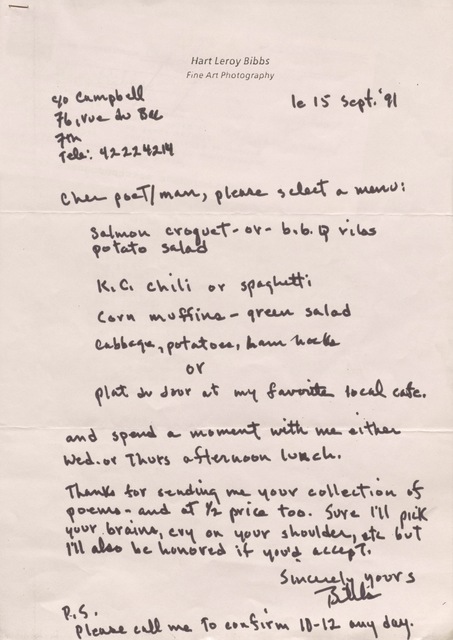 Hart Leroy Bibbs
Fine Art Photography
c/o Campbell
76, rue du Bac
7th
Tele: 42224214
le 15 Sept. '91
Cher poet/man, please select a menu:
Salmon croquet - or - b.b.q ribs
potato salad
K.C. chili or spaghetti
corn muffins - green salad
cabbage, potatoes, ham hocks
or
plat du door at my favorite local cafe.
and spend a moment with me either
Wed. or Thurs afternoon lunch.
Thanks for sending me your collection of
poems - and at 1/2 price too. Sure I'll pick
your brains, cry on your shoulder, etc but
I'll also be honored if you'd accept.
Sincerely yours
Bibbs
P.S.
Please call me to confirm 10-12 any day.